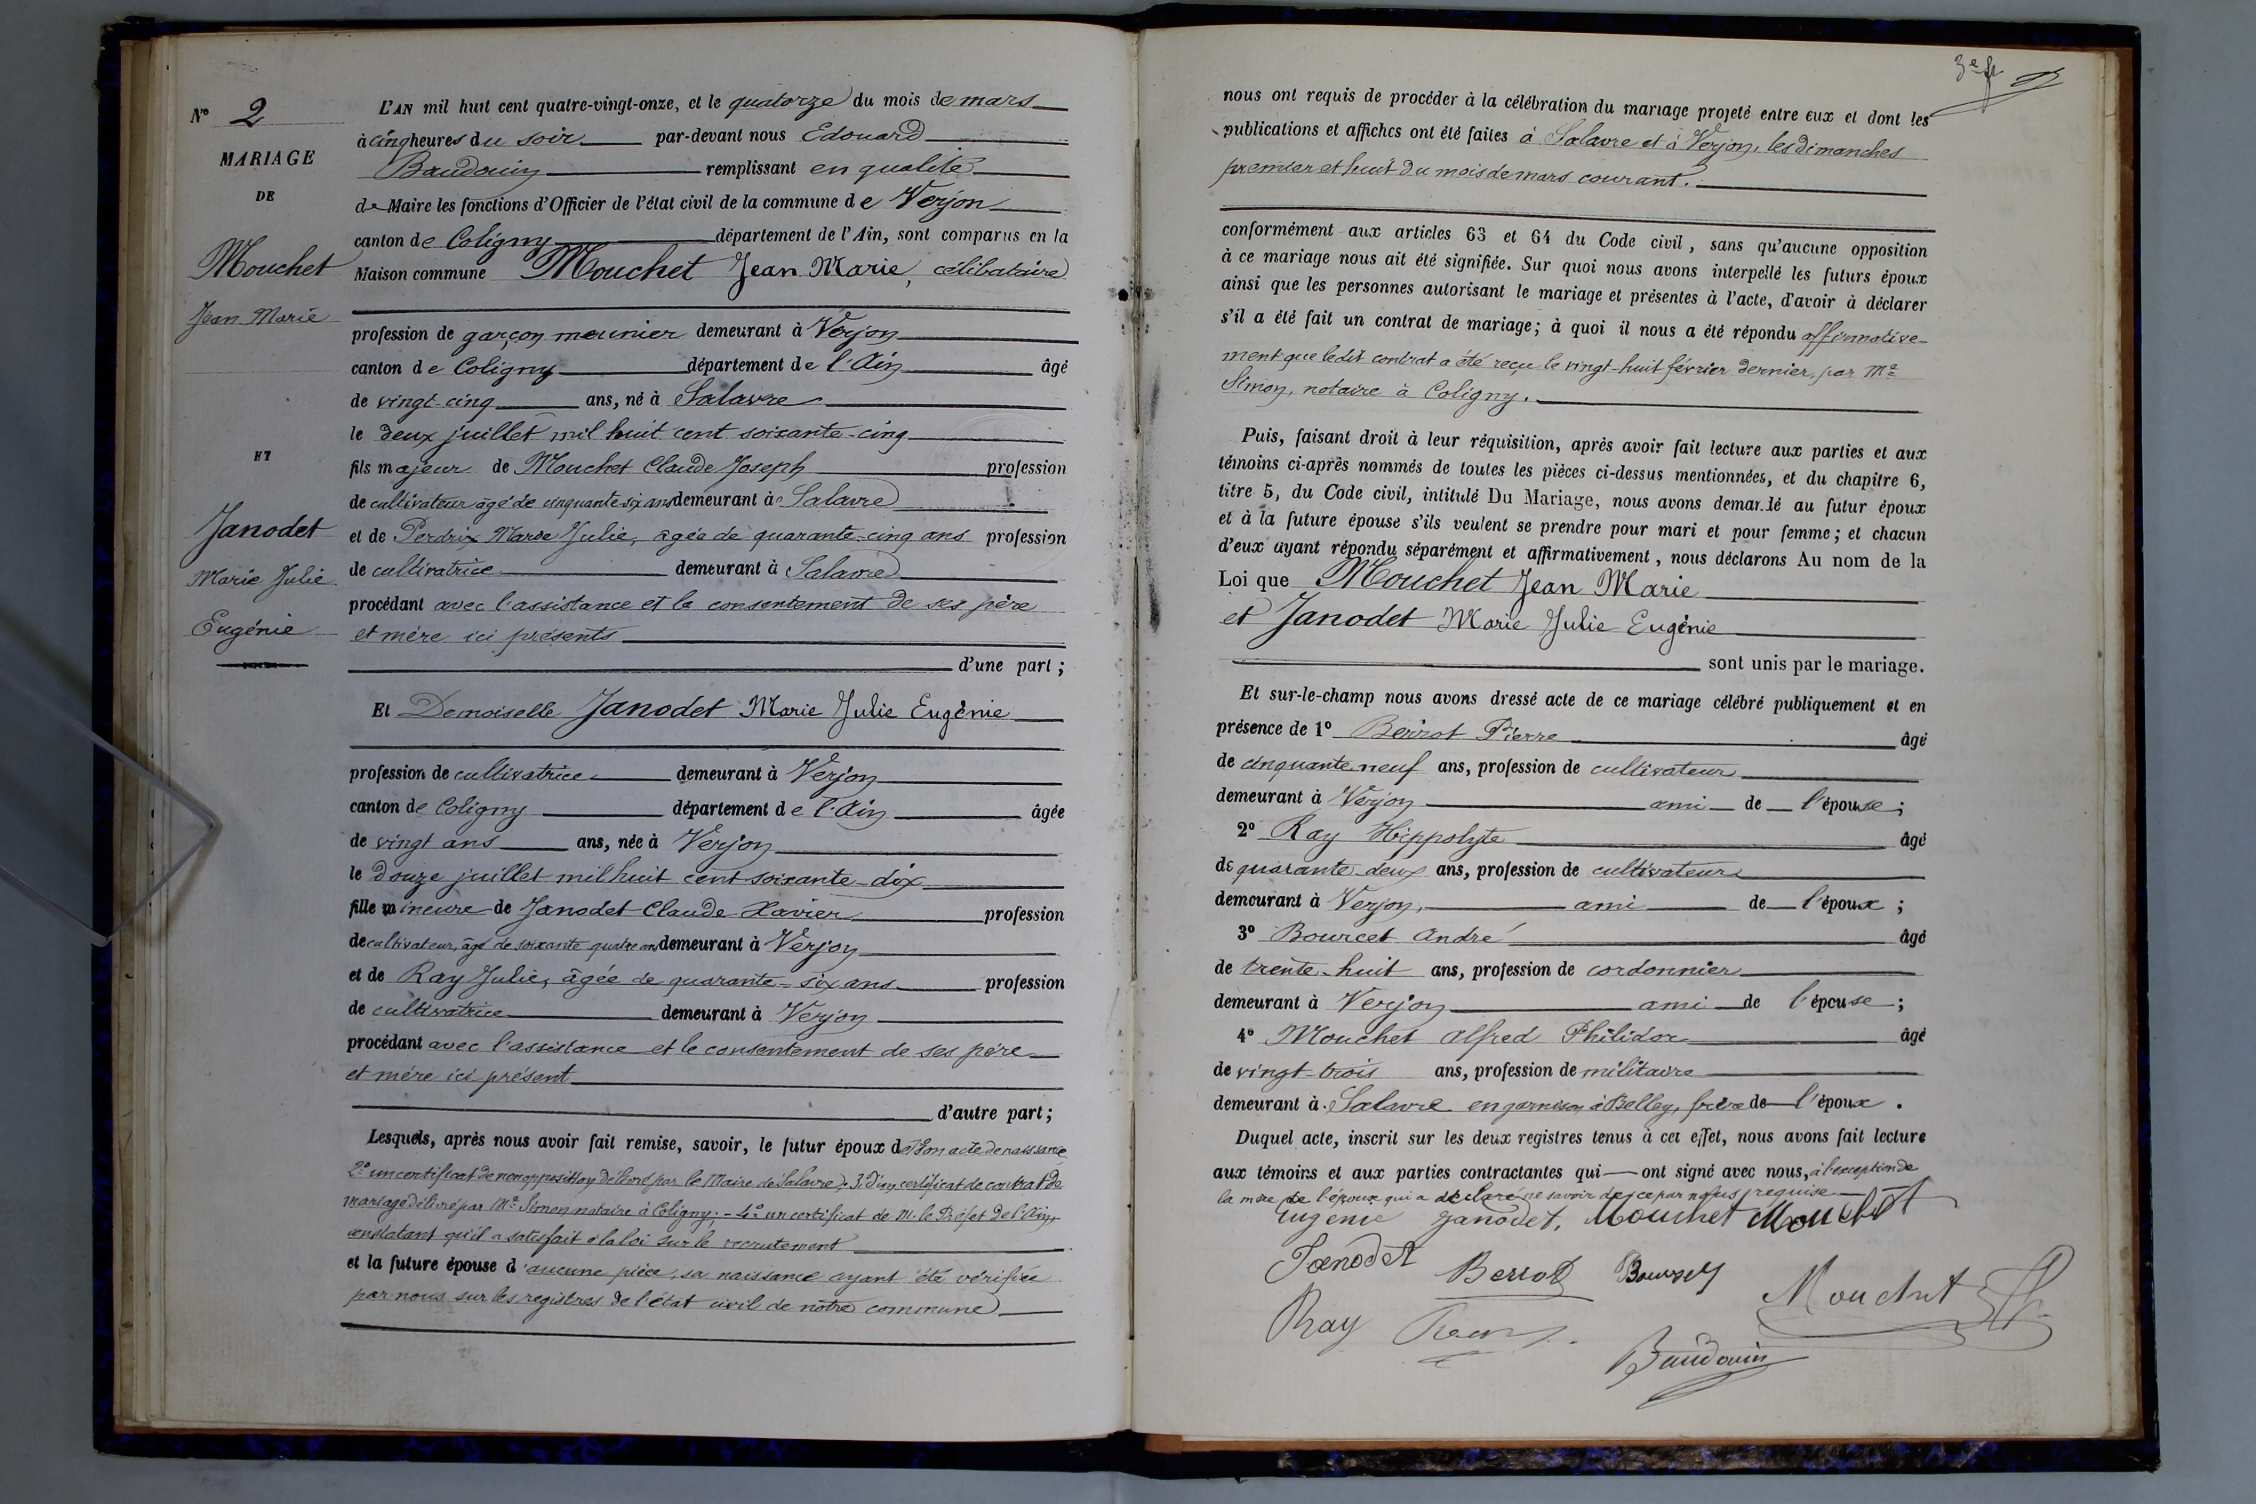 N° 2
MARIAGE
DE
Mouchet
Jean Marie
ET
Janodet
Marie Julie
Eugénie
L'AN mil huit cent quatre-vingt-onze, et le quatorze du mois de mars
à cinq heures du soir par-devant nous Edouard
Baudouin remplissant en qualité
de Maire les fonctions d'Officier de l'état civil de la commune de Verjon
canton de Coligny département de l'Ain, sont comparus en la
Maison commune Mouchet Jean Marie, célibataire
profession de garçon meunier demeurant à Verjon
canton de Coligny département de l'Ain âgé
de vingt-cinq ans, né à Salavre
le deux juillet mil huit cent soixante-cinq
fils majeur de Mouchet Claude Joseph profession
de cultivateur âgé de cinquante-six ans demeurant à Salavre
et de Perdrix Marie Julie, âgée de quarante-cinq ans profession
de cultivatrice demeurant à Salavre
procédant avec l'assistance et le consentement de ses père
et mère ici présents
d'une part ;
Et Demoiselle Janodet Marie Julie Eugénie
profession de cultivatrice demeurant à Verjon
canton de Coligny département de l'Ain âgée
de vingt ans ans, née à Verjon
le douze juillet mil huit cent soixante-dix
fille mineure de Janodet Claude Xavier profession
de cultivateur, âgé de soixante quatre ans demeurant à Verjon
et de Ray Julie, âgée de quarante-six ans profession
de cultivatrice demeurant à Verjon
procédant avec l'assistance et le consentement de ses père
et mère ici présent
d'autre part ;
Lesquels, après nous avoir fait remise, savoir, le futur époux de son acte de naissance
2° un certificat de non opposition délivré par le Maire de Salavre ; 3° d'un certificat de contrat de
mariage délivré par Me Simon notaire à Coligny ; - 4° un certificat de M. le Préfet de l'Ain,
constatant qu'il a satisfait à la loi sur le recrutement
et la future épouse d'aucune pièce, sa naissance ayant été vérifiée
par nous sur les registres de l'état civil de notre commune
3e
nous ont requis de procéder à la célébration du mariage projeté entre eux et dont les
publications et affiches ont été faites à Salavre et à Verjon, les dimanches
premier et huit du mois de mars courant.
conformément aux articles 63 et 64 du Code civil, sans qu'aucune opposition
à ce mariage nous ait été signifiée. Sur quoi nous avons interpellé les futurs époux
ainsi que les personnes autorisant le mariage et présentes à l'acte, d'avoir à déclarer
s'il a été fait un contrat de mariage ; à quoi il nous a été répondu affirmative-
ment que ledit contrat a été reçu le vingt-huit février dernier, par Me
Simon, notaire à Coligny.
Puis, faisant droit à leur réquisition, après avoir fait lecture aux parties et aux
témoins ci-après nommés de toutes les pièces ci-dessus mentionnées, et du chapitre 6,
titre 5, du Code civil, intitulé Du Mariage, nous avons demandé au futur époux
et à la future épouse s'ils veulent se prendre pour mari et pour femme ; et chacun
d'eux ayant répondu séparément et affirmativement, nous déclarons Au nom de la
Loi que Mouchet Jean Marie
et Janodet Marie Julie Eugénie
sont unis par le mariage.
Et sur-le-champ nous avons dressé acte de ce mariage célébré publiquement et en
présence de 1° Berrot Pierre âgé
de cinquante-neuf ans, profession de cultivateur
demeurant à Verjon ami de l'épouse ;
2° Ray Hippolyte âgé
de quarante-deux ans, profession de cultivateur
demeurant à Verjon, ami de l'époux ;
3° Bourcet André âgé
de trente-huit ans, profession de cordonnier
demeurant à Verjon ami de l'épouse ;
4° Mouchet Alfred Philidor âgé
de vingt-trois ans, profession de militaire
demeurant à Salavre en garnison à Belley, frère de l'époux.
Duquel acte, inscrit sur les deux registres tenus à cet effet, nous avons fait lecture
aux témoins et aux parties contractantes qui ont signé avec nous, à l'exception de
la mère de l'époux qui a déclaré ne savoir de ce par nous requise
Eugénie Janodet, Mouchet Mouchet
Janodet Berrot Bourcet Mouchet
Ray
Baudouin